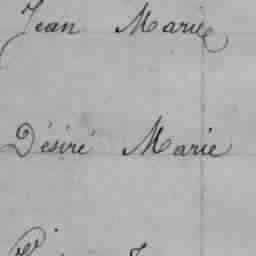 Jean Marie
Désiré Marie